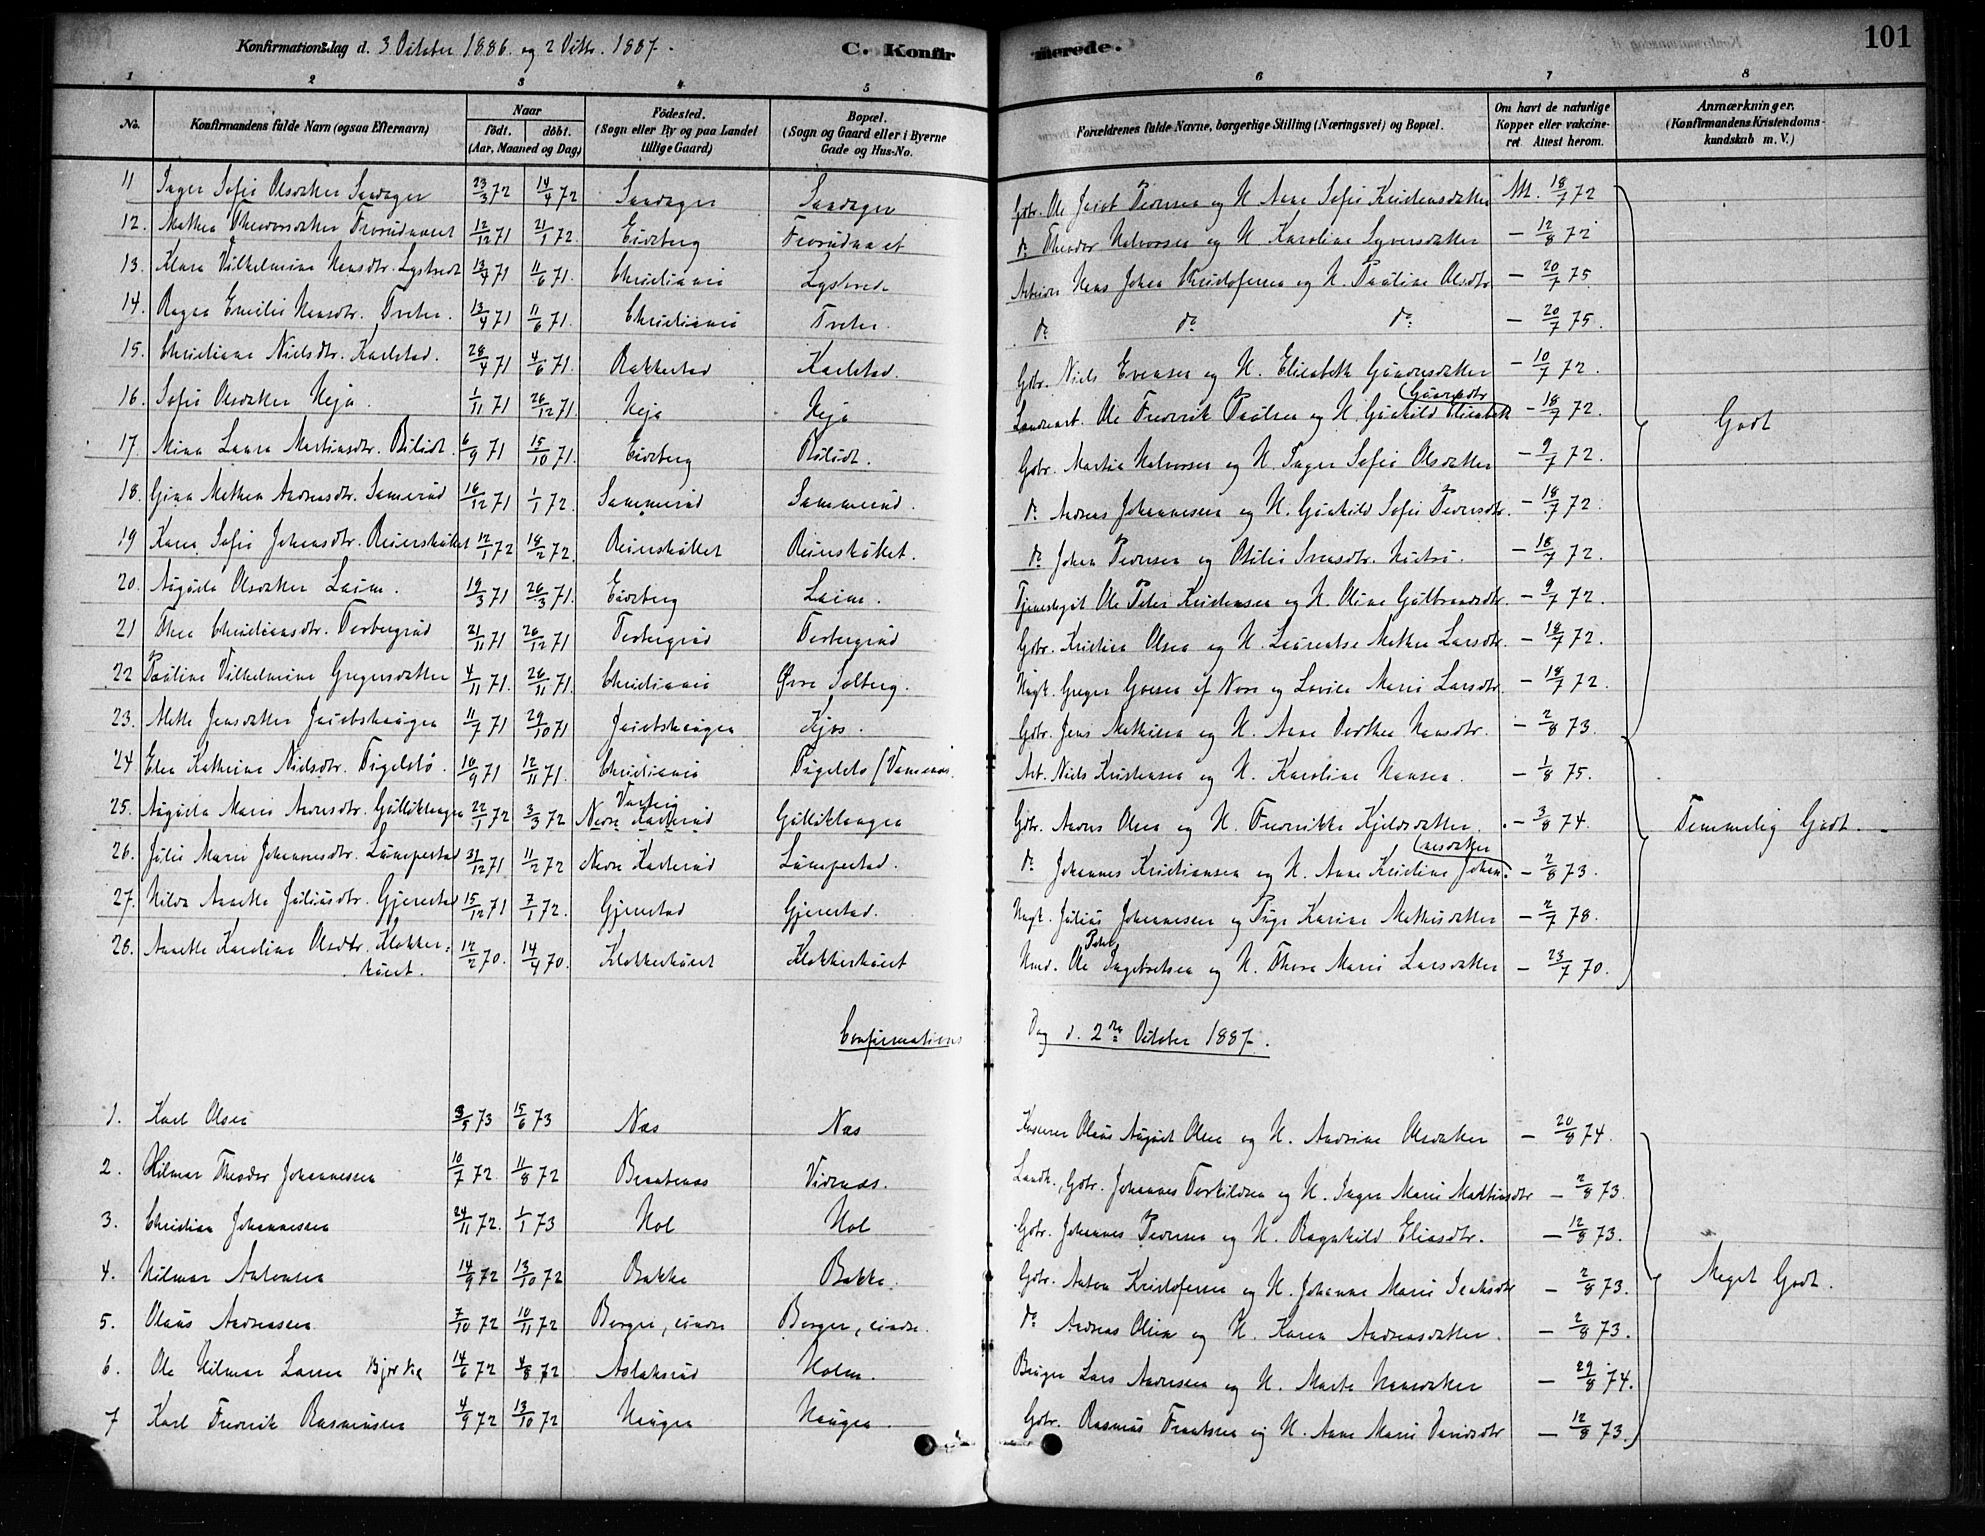 Konfirmationsdag d. 3 October 1886. og 2 Octbr. 1887.
C. Konfirmerede.
101
1 2 3 4 5 6 7 8
No.
Konfirmandens fulde Navn (ogsaa Efternavn)
Naar
født. døbt.
(Aar, Maaned og Dag)
Fødested.
(Sogn eller By og paa Landet tillige Gaard)
Bopæl.
(Sogn og Gaard eller i Byerne Gade og Hus-No.
Forældrenes fulde Navne, borgerlige Stilling (Næringsvei) og Bopæl.
Om havt de naturlige Kopper eller vakcineret. Attest herom.
Anmærkninger.
(Konfirmandens Kristendomskundskab m. V.)
11 Inger Sofie Olsdatter Sandager 23/3 72 14/4 72 Sandager Sandager Gbr. Ole Jacob Pedersen og H. Anne Sofie Kristensdatter Att. 18/7 72
12. Mathea Theodorsdatter 12/12 71 21/1 72. Eidsberg Gbr. Theodor Halvorsen og H. Karoline Syversdatter - 12/8 72
13. Klara Vilhelmine Hansdtr. Lystvedt 13/4 71 11/6 71. Christiania Lystvedt Arbeider Hans Johan Kristofersen og H. Pauline Olsdtr - 20/7 75.
14. Ragna Emilie Hansdtr. Treter. 13/4 71 11/6 71. Christiania Treter. do do do - 20/7 75.
15. Christiane Nielsdtr. Karlstad. 28/4 71 4/6 71. Rakkestad Karlstad. Gbr. Niels Evensen og H. Elisabeth Gundersdatter - 10/7 72.
16. Sofie Olsdatter Heja. 1/11 71 26/12 71. Heja Heja Ole Fredrik Paulsen og H. Gunhild Elisabeth - 18/7 72.
17. Mina Laura Martinsdtr. 6/9 71 15/10 71. Eidsberg Gbr. Martin Halvorsen og H. Inger Sofie Olsdatter - 9/7 72.
18. Gina Mathea Andreasdtr. Sammerud 16/12 71 1/1 72. Sammerud Sammerud. do Andreas Johannesen og H. Gunhild Sofie Pedersdtr. - 18/7 72.
19 Karen Sofie Johansdtr. Reierskottet 12/1 72 18/2 72. Reierskottet Reierskottet. do Johan Pedersen og Otilie Svensdtr. Hustru. - 18/7 72.
20. Augusta Olsdatter Leim. 19/3 71 26/3 71. Eidsberg Leim. Tjenestegut Ole Peter Kristensen og H. Oline Gulbrandsdtr. - 9/7 72.
21 Thea Christiansdtr. Torbergrud 21/11 71 26/12 71 Torbergrud Torbergrud Gbr. Kristian Olsen og H. Laurentse Mathea Larsdtr. - 18/7 72.
22 Pauline Vilhelmine Gregersdatter 4/11 71. 26/11 71. Christiania Øvre Solberg. Ungk. Greger og Lovise Marie Larsdtr. - 18/7 72.
23. Mette Jensdatter Jacobshaugen 11/7 71 29/10 71 Jacobshaugen Kjos. Gbr. Jens Mathisen og H. Anne Dorthea Hansdtr. - 2/8 73.
Godt
24 Elen Kathrine Nielsdtr. Tigelstø. 10/9 71 12/11 71. Christiania Tigelstø Arb. Niels Kristensen og H. Karoline Hansen. - 1/8 75.
25. Augusta Marie Andersdtr. Gullikhaugen 22/1 72 3/3 72 Varteig Nedre Karlsrud Gullikhaugen Gbr. Anders Olsen og H. Fredrikke Kjeldsdatter. - 3/8 74.
26. Julie Marie Johannesdtr. Lumpestad 31/12 71 11/2 72 Nedre Karlsrud Lumpestad. do Johannes Kristiansen og H. Anne Kristine Johannesdatter - 2/8 73.
27. Hilda Anette Juliusdtr. Gjerestad 15/12 71 7/1 72. Gjerestad Gjerestad. Ungk. Julius Johannesen og Pige Karine Mathisdatter - 2/7 78.
28. Anette Karoline Olsdtr. Klokkerhuset. 12/2 70. 14/4 70. Klokkerhuset Klokkerhuset Ole Peter Ingebretsen og H. Thora Marie Larsdatter - 23/7 70.
Temmelig Godt.
Confirmations Dag d. 2den October 1887.
1. Karl Olsen 3/5 73 15/6 73 Næs Næs Olaus August Olsen og H. Andrine Olsdatter - 20/8 74.
2. Hilmar Theodor Johannessen 10/7 72 11/8 72 Braatenæs Vidnæs. Landh., Gbr. Johannes Torkildsen og H. Inger Marie Mathisdtr - 2/8 73.
3. Christian Johannessen 24/11 72. 1/1 73 Hol Hol Gbr. Johannes Pedersen og H. Ragnhild Eliasdtr. - 12/8 73.
4. Hilmar Antonsen 14/9 72 13/10 72 Bakke Bakke. Gbr. Anton Kristofersen og H. Johanne Marie Isaksdtr - 2/8 73.
5. Olaus Andreassen 7/10 72 10/11 72 Berger, Berger, do Andreas Olsen og H. Karen Andreasdatter. - 2/8 73.
6. Ole Hilmar Larsen Bjerke 14/6 72 4/8 72 Aslaksrud Holm. Lars Andersen og H. Marte Hansdatter - 29/8 74.
7 Karl Fredrik Rasmussen 4/9 72 13/10 72 Haugen Haugen Gbr. Rasmus Frantsen og H. Anne Marie Davidsdtr - 12/8 73.
Meget Godt.